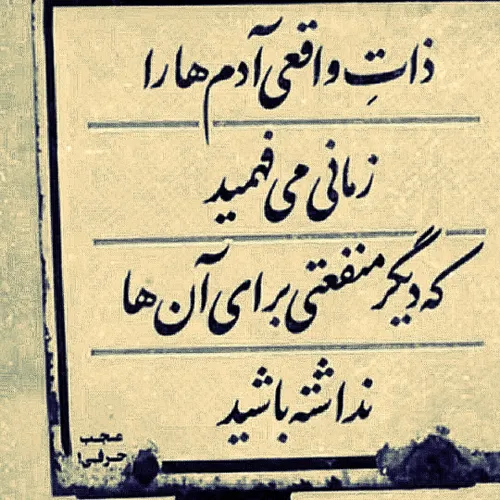 ذاتِ واقعی آدم ها را
زمانی می فهمید
که دیگر منفعتی برای آن ها
نداشته باشید
عجب
حرفی!